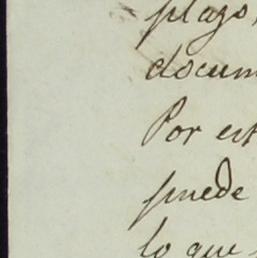 plazo,
docum
Por est
puede
lo que